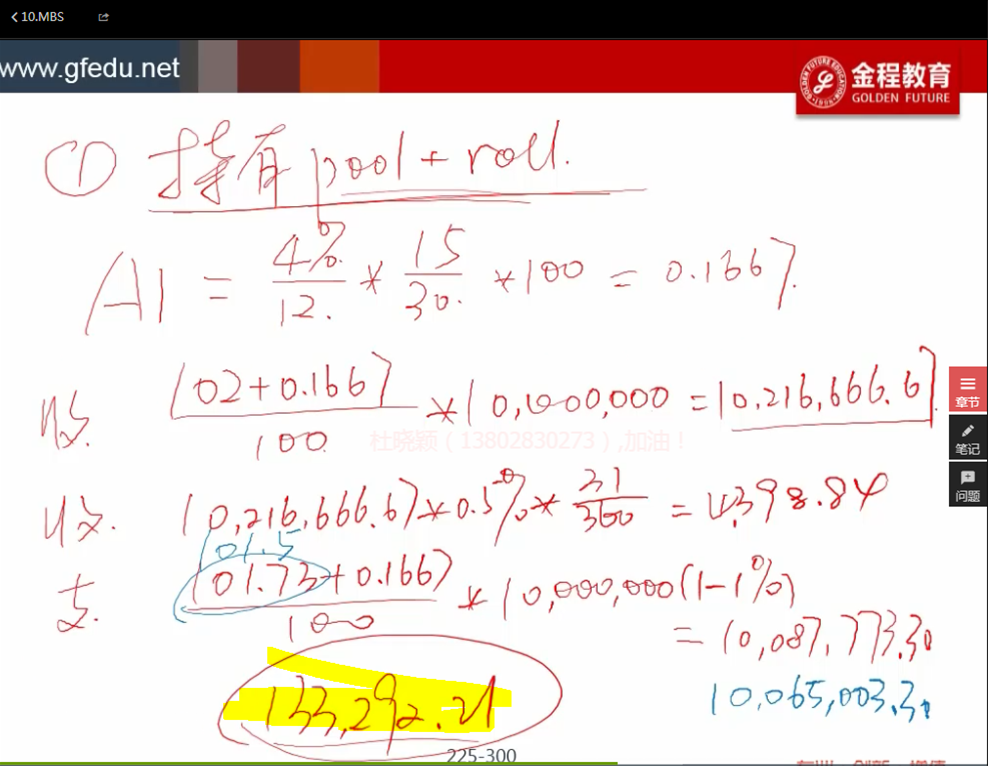 10.MBS
www.gfedu.net
金程教育
GOLDEN FUTURE
GOLDEN FUTURE EDUCATION
① 持有 pool + roll.
AI = 4%/12. * 15/30. * 100 = 0.1667.
收. (102+0.1667)/100 * 10,000,000 = 10,216,666.67.
章节
杜晓颖（13802830273）,加油！
笔记
收. 10,216,666.67 * 0.5% * 31/360 = 4,398.84
问题
101.5
支. (101.73+0.1667)/100 * 10,000,000(1-1%)
= 10,087,773.30
10,065,003.30
133,292.21
225-300